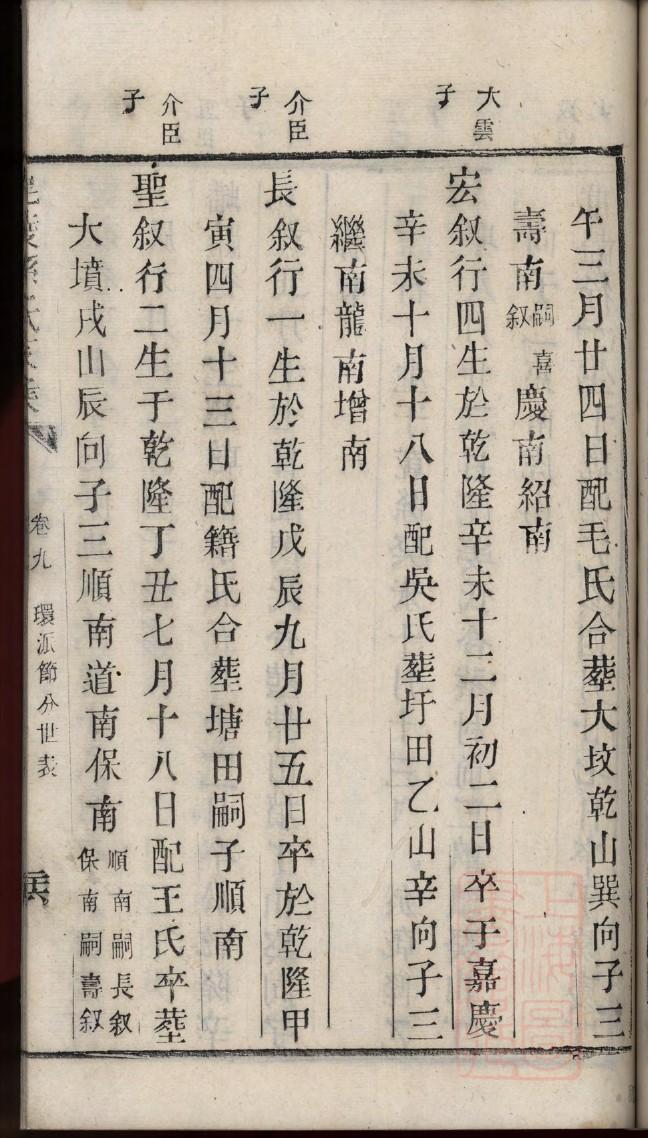 午三月廿四日配毛氏合塟大坟乾山巽向子三
壽南嗣喜叙慶南紹南
大雲子
宏叙行四生於乾隆辛未十二月初二日卒于嘉慶
辛未十月十八日配吳氏塟圩田乙山辛向子三
繼南龍南增南
介臣子
長叙行一生於乾隆戊辰九月廿五日卒於乾隆甲
寅四月十三日配籍氏合塟塘田嗣子順南
介臣子
聖叙行二生于乾隆丁丑七月十八日配王氏卒塟
大墳戌山辰向子三順南道南保南順南嗣長叙保南嗣壽叙
卷九 環派節分世表